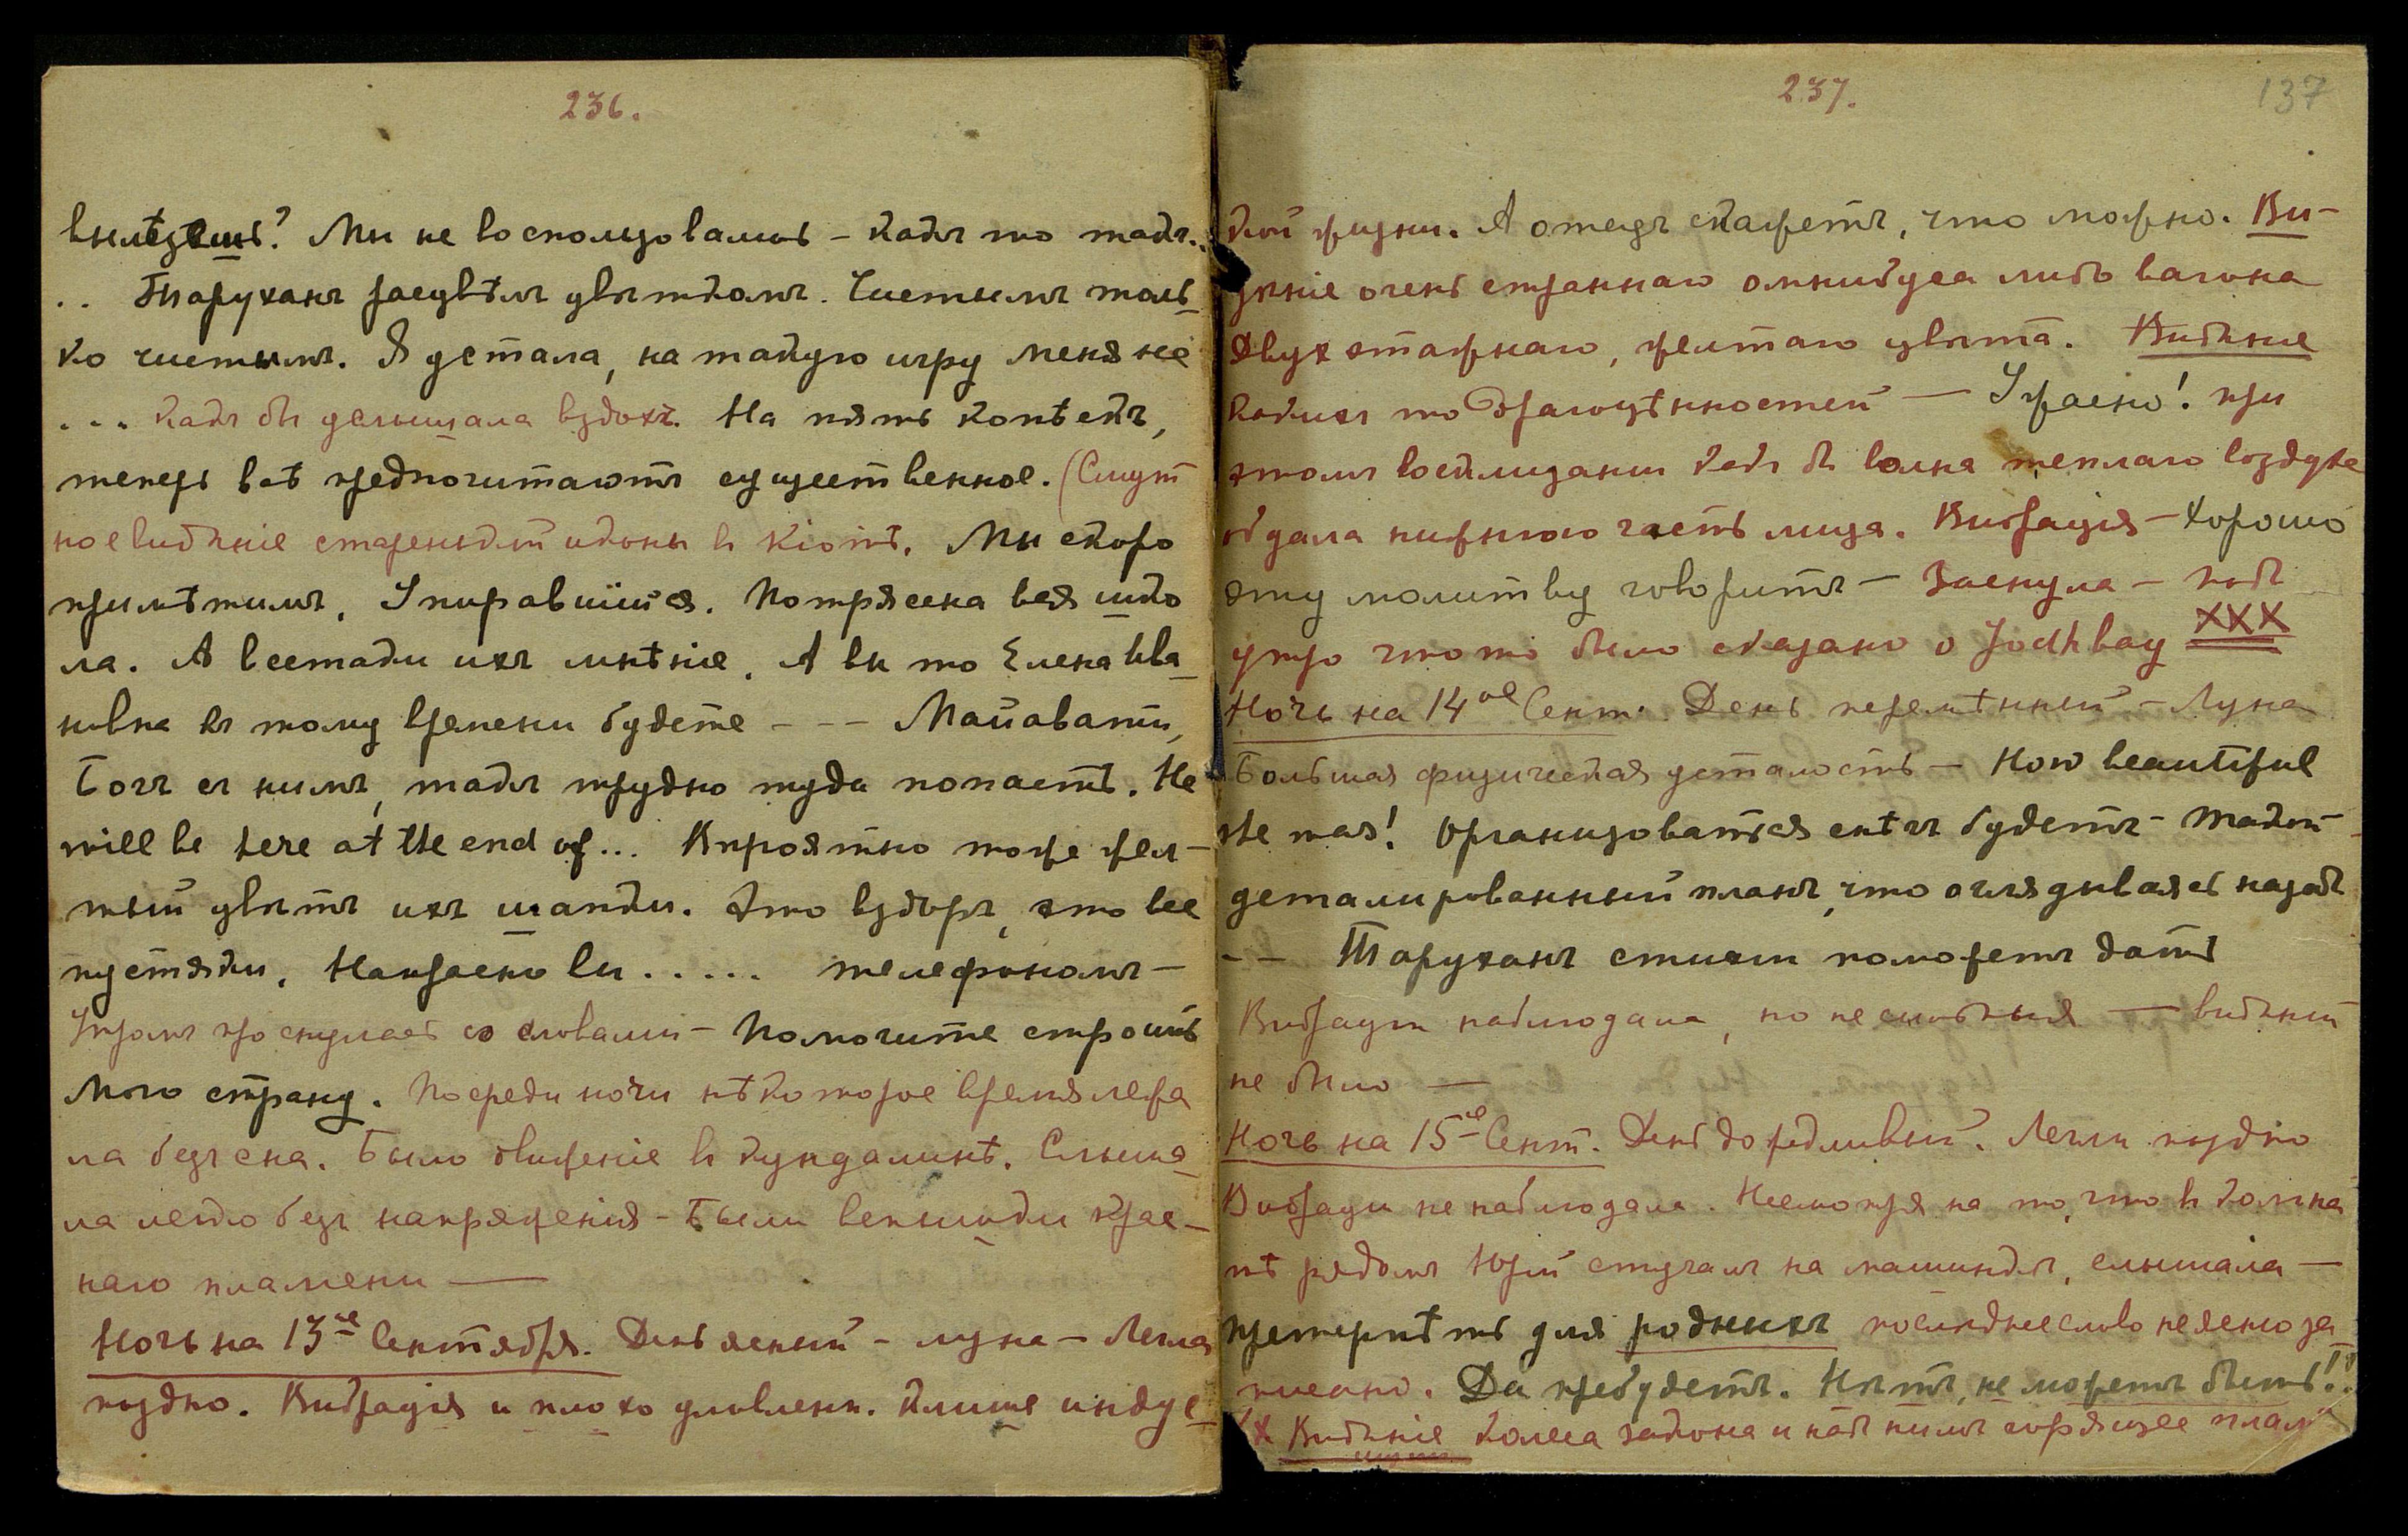 236.
вылѣзешь? Мы не воспользовались – какъ то такъ..
.. Таруханъ расцвѣлъ цвѣткомъ. Чистымъ толь
ко чистымъ. Я устала, на такую игру меня не
... какъ бы услышала вздохъ. На пять копѣекъ,
теперь всѣ предпочитаютъ существенное. (Смут
ное видѣніе старенькой иконы въ кіотѣ. Мы скоро
примѣтимъ. Упиравшійся. Потрясена вся шко
ла. А всетаки ихъ мнѣніе. А вы то Елена Ива
новна къ тому времени будете - - - Майавати,
Богъ съ нимъ, такъ трудно туда попасть. He
will be here at the end of... Вѣроятно тоже жел-
тый цвѣтъ ихъ шапки. Это вздоръ, это все
пустяки. Напрасно вы ..... телефономъ –
Утромъ проснулась со словами – Помогите строить
Мою страну. Посреди ночи нѣкоторое время лежа
ла безъ сна. Было движеніе въ кундалинѣ. Слыша
ла легко безъ напряженія – Были вспышки крас-
наго пламени —
Ночь на 13ое Сентября. День ясный – луна – Легла
поздно. Вибрація и плохо уловлены. Клише индус
237.
137
кой жизни. А отецъ скажетъ, что можно. Ви-
дѣніе очень страннаго омнибуса либо вагона
двухэтажнаго, желтаго цвѣта. Видѣніе
какихъ то драгоцѣнностей — Ужасно! при
этомъ восклицаніи какъ бы волна теплаго воздуха
обдала нижнюю часть лица. Вибрація – Хорошо
эту молитву говоритъ – Заснула – подъ
утро что то было сказано о Jodhbay XXX
Ночь на 14ое Сент. День перемѣнный – Луна
Большая физическая усталость – How beautiful
she was! Организоваться снѣгъ будетъ – такой
детализированный планъ, что оглядываясь назадъ
- - Таруханъ стихи поможетъ дать
Вибраціи наблюдала, но не сильныя — видѣній
не было —
Ночь на 15е Сент. День дождливый. Легли поздно
Вибраціи не наблюдала. Несмотря на то, что въ комна
тѣ рядомъ Юрій стучалъ на машинкѣ, слышала –
претерпѣть для родныхъ послѣднее слово неясно за
писано. Да пребудетъ. Нѣтъ, не можетъ быть!!
X Видѣніе колеса закона и надъ нимъ горящее плам